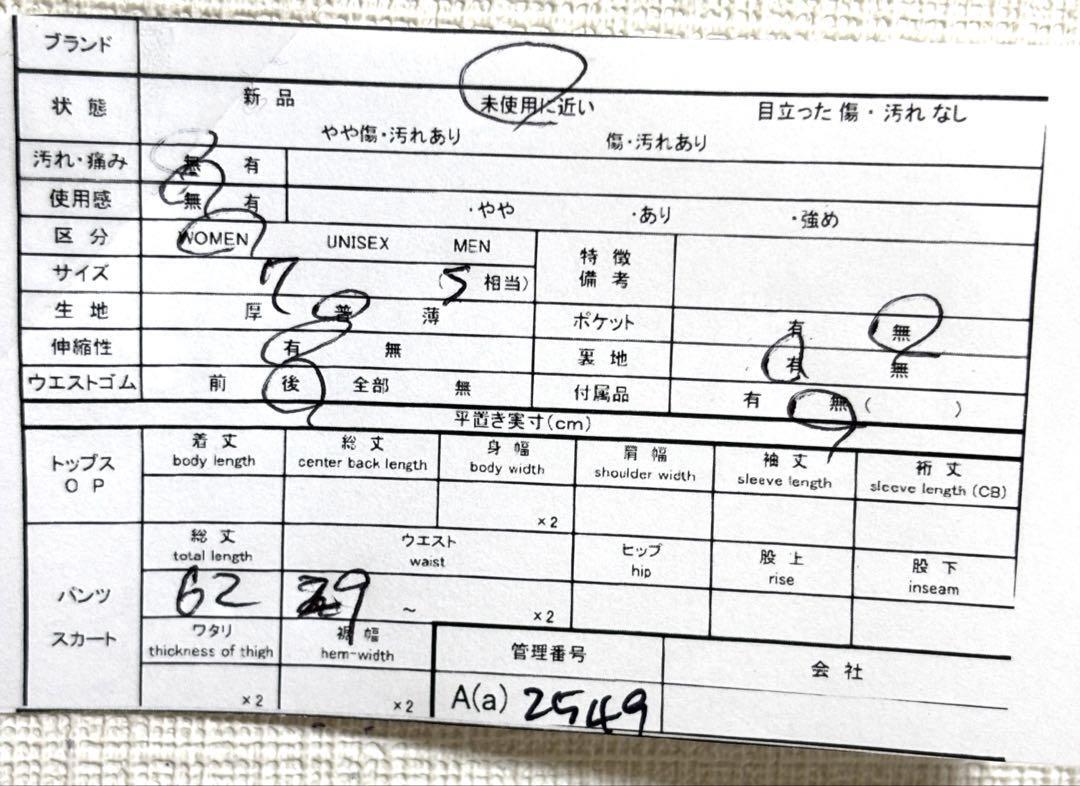 ブランド
状態 新品 未使用に近い 目立った傷・汚れなし
やや傷・汚れあり 傷・汚れあり
汚れ・痛み 無 有
使用感 無 有 ・やや ・あり ・強め
区分 WOMEN UNISEX MEN 特徴備考
サイズ 7 (S 相当)
生地 厚 普 薄 ポケット 有 無
伸縮性 有 無 裏地 有 無
ウエストゴム 前 後 全部 無 付属品 有 無 ( )
平置き実寸(cm)
トップス OP 着丈 総丈 身幅 肩幅 袖丈 裄丈
body length center back length body width shoulder width sleeve length sleeve length (CB)
×2
総丈 ウエスト ヒップ 股上 股下
total length waist hip rise inseam
パンツ 62 9 ~ ×2
スカート ワタリ 裾幅 管理番号 会社
thickness of thigh hem-width
×2 ×2 A(a) 2549